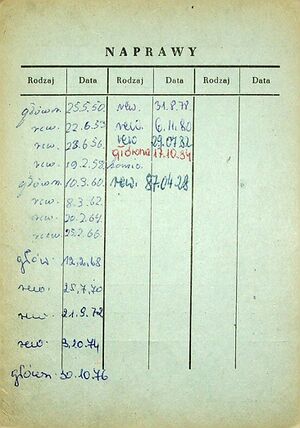 NAPRAWY
Rodzaj Data Rodzaj Data Rodzaj Data
główn. 25.5.50. rew. 31.8.78
rew. 22.6.53 rew. 6.11.80
rew. 28.6.56. rew 29.07.82
główna 17.10.84.
rew. 19.2.58.
główn. 10.9.60. rew. 87.04.28
rew. 8.3.62.
rew. 20.2.64.
rew. 25.2.66.
głów. 12.2.68
rew. 25.7.70
rew. 21.9.72
rew. 3.10.74
główn. 30.10.76